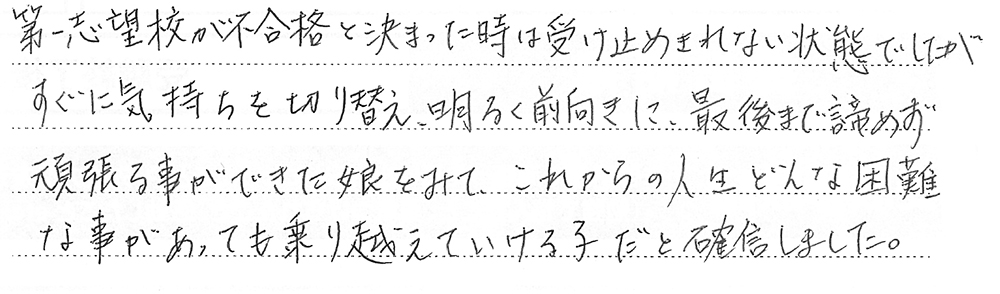 第一志望校が不合格と決まった時は受け止めきれない状態でしたが
すぐに気持ちを切り替え、明るく前向きに、最後まで諦めず
頑張る事ができた娘をみて、これからの人生どんな困難
な事があっても乗り越えていける子だと確信しました。